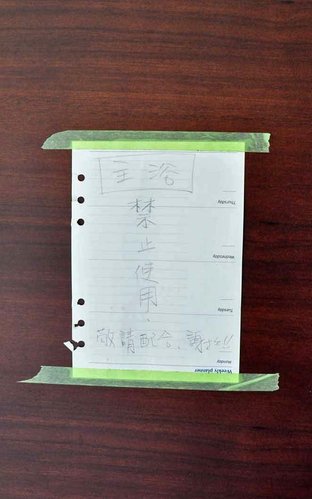 主浴
禁止使用.
敬請配合、謝謝!!
Thursday
Wednesday
Tuesday
Monday
Weekly planner